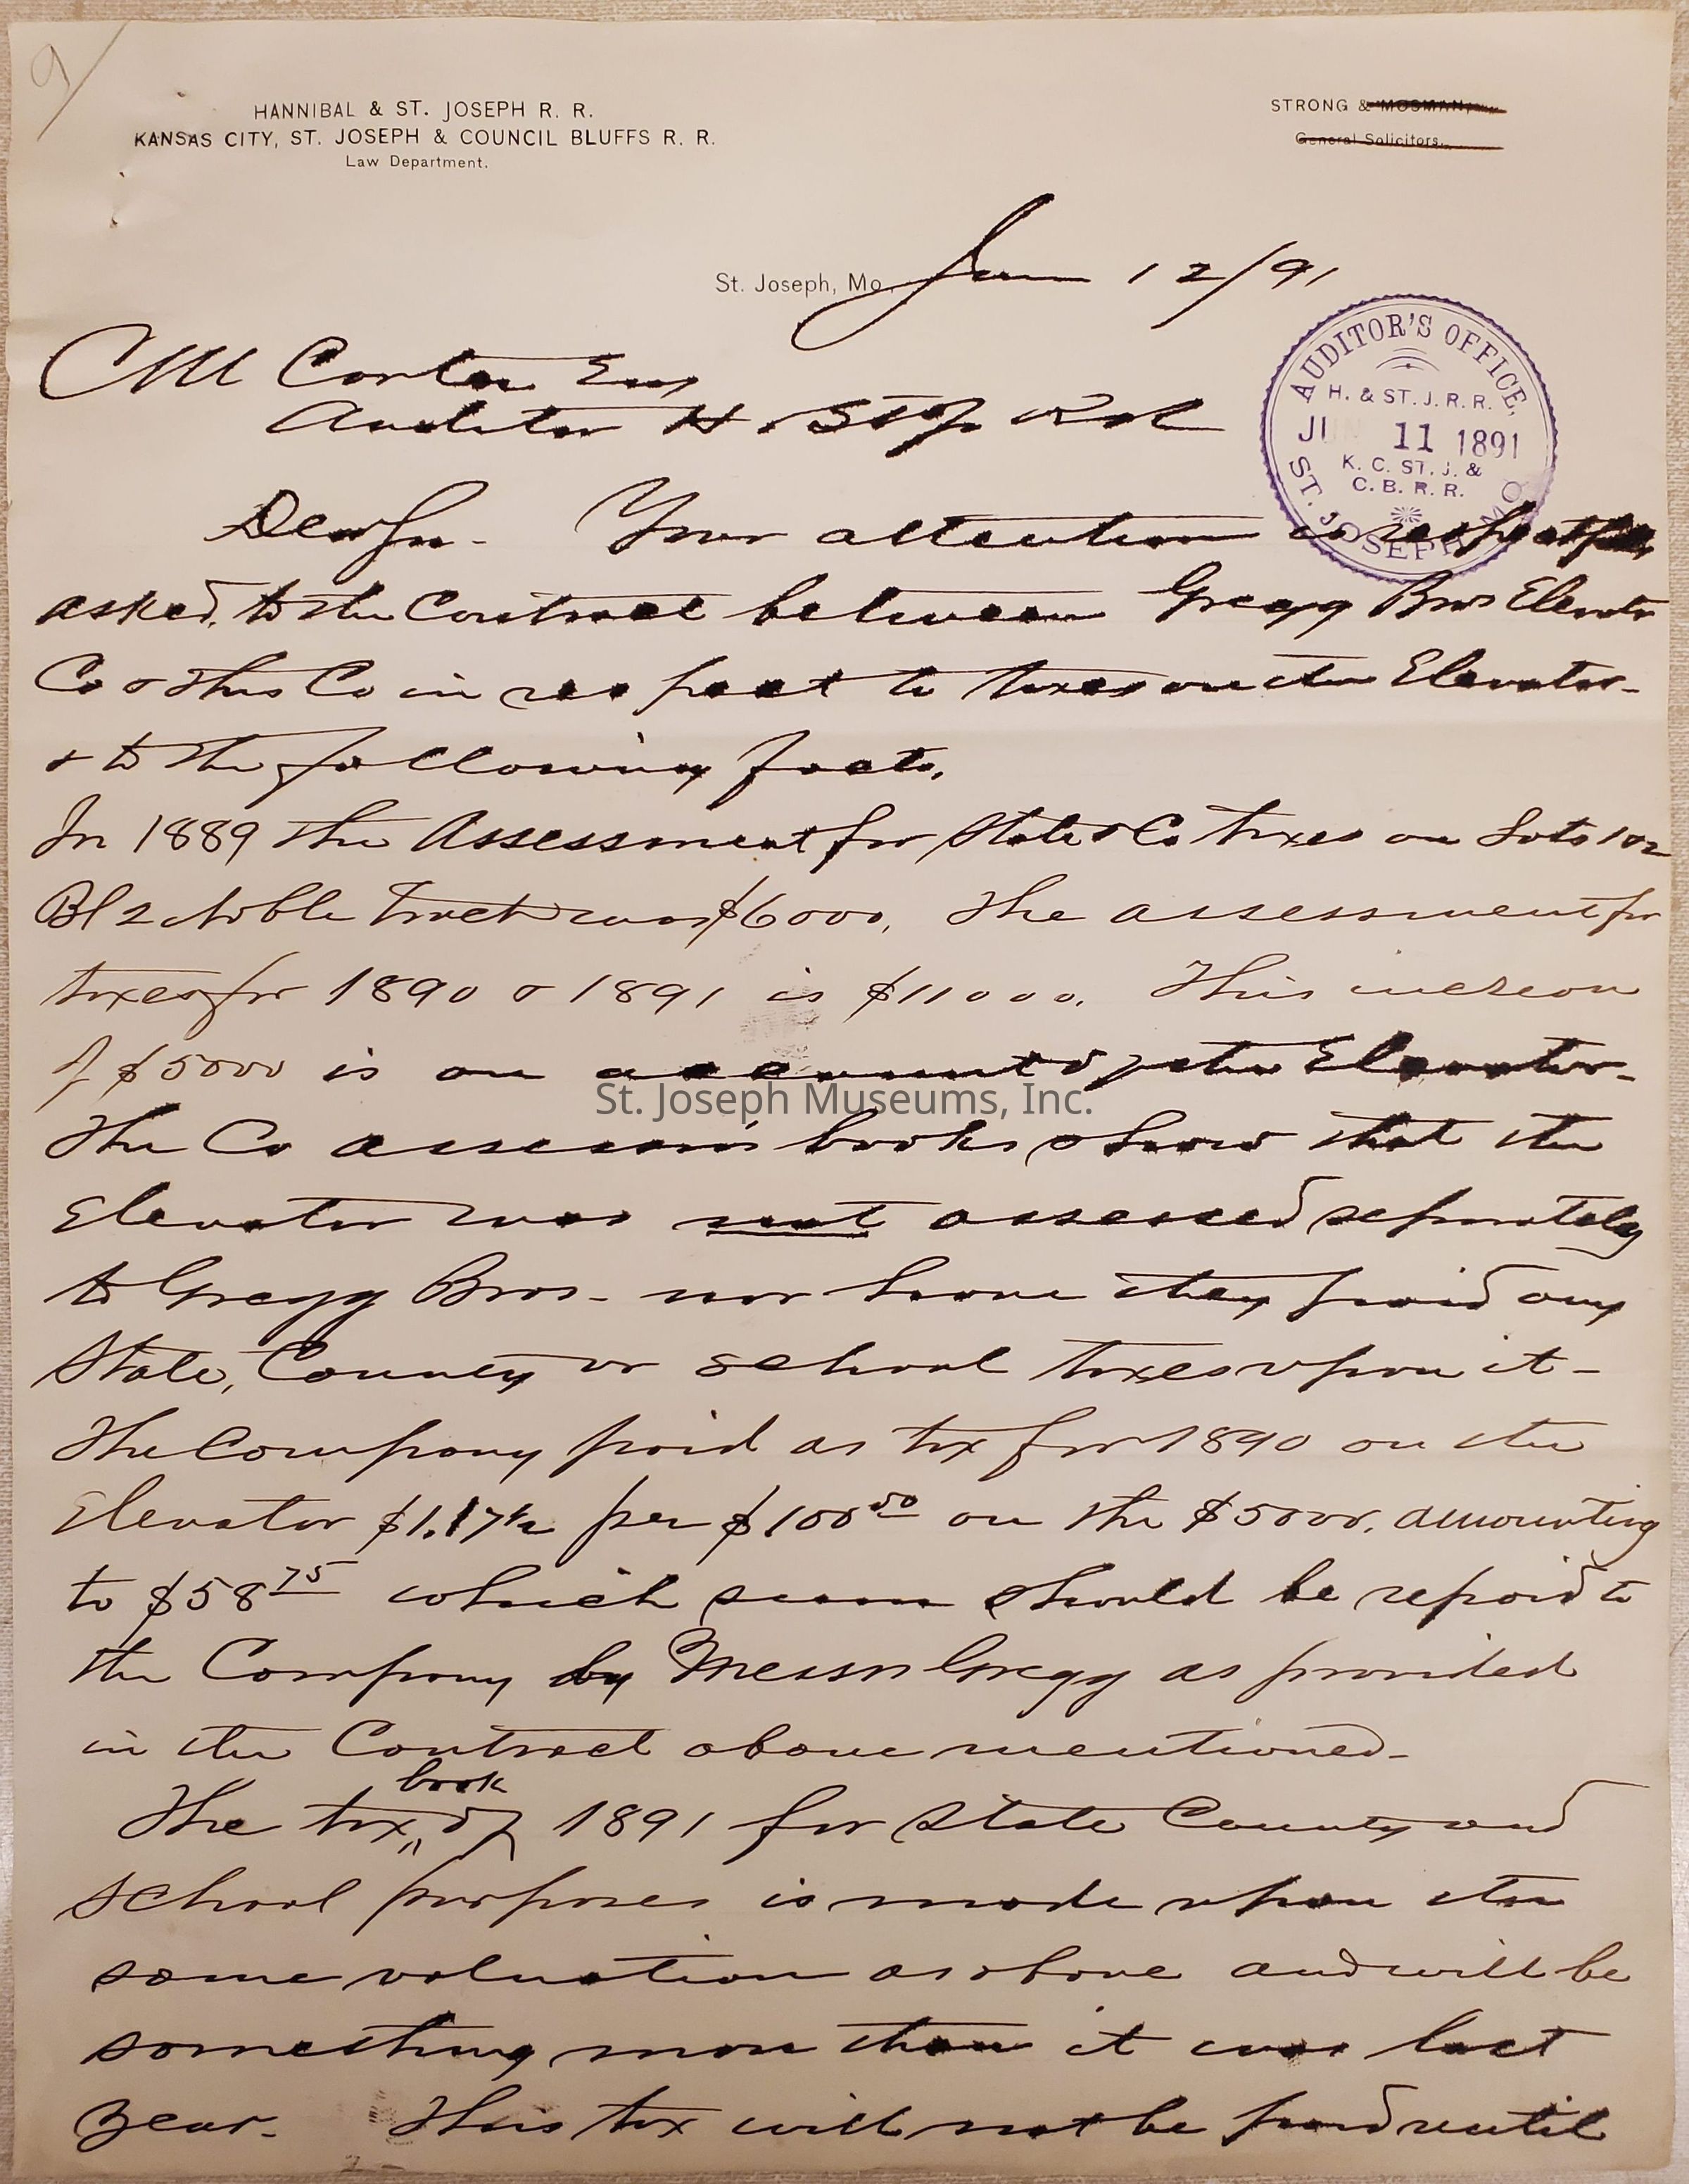 9/
HANNIBAL & ST. JOSEPH R. R.
KANSAS CITY, ST. JOSEPH & COUNCIL BLUFFS R. R.
Law Department.
STRONG & MOSMAN,
General Solicitors.
St. Joseph, Mo. Jun 12/91
C M Carter Esq
Auditor H & St J R R
AUDITOR'S OFFICE,
H. & ST. J. R. R.
JUN 11 1891
K. C. ST. J. &
C. B. R. R.
ST. JOSEPH, MO.
Dear Sir - Your attention is respectfully
asked, to the Contract between Gregg Bros Elevator
Co & this Co in respect to taxes on the Elevator -
& to the following facts.
In 1889 the Assessment for State & Co taxes on Lots 1 & 2
Bl 2 Noble Tract was $6000. The assessment for
taxes for 1890 & 1891 is $11000. This increase
of $5000 is on account of the Elevator -
The Co assessor's books show that the
Elevator was not assessed separately
to Gregg Bros - nor have they paid any
State, County or school taxes upon it -
The Company paid as tax for 1890 on the
Elevator $1.17½ per $100 00 on the $5000. amounting
to $58 75 which sum should be repaid to
the Company by Messrs Gregg as provided
in the Contract above mentioned -
The tax book of 1891 for State County and
school purposes is made upon the
same valuation as above and will be
something more than it was last
year - This tax will not be paid until
St. Joseph Museums, Inc.